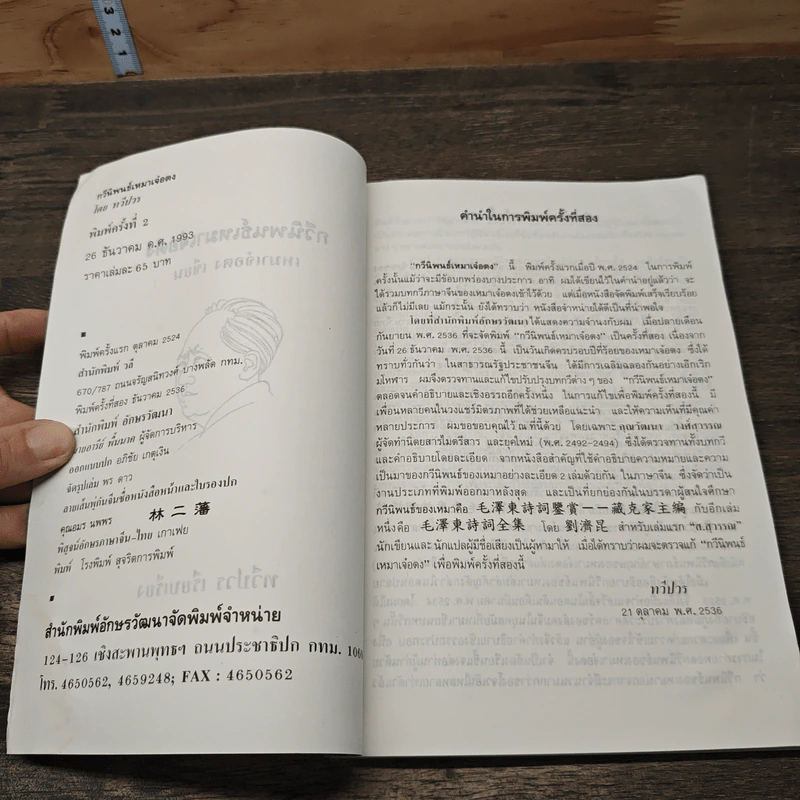 กวีนิพนธ์เหมาเจ๋อตง
โดย ทวีปวร
พิมพ์ครั้งที่ 2
26 ธันวาคม ค.ศ. 1993
ราคาเล่มละ 65 บาท
พิมพ์ครั้งแรก ตุลาคม 2524
สำนักพิมพ์ วลี
670/787 ถนนจรัญสนิทวงศ์ บางพลัด กทม.
พิมพ์ครั้งที่สอง ธันวาคม 2536
สำนักพิมพ์ อักษรวัฒนา
ผู้จัดการบริหาร
ออกแบบปก อภิชัย เกตุเงิน
จัดรูปเล่ม พร ดาว
ลายเส้นพู่กันจีนชื่อหนังสือหน้าและใบรองปก
คุณอมร นพพร 林二藩
พิสูจน์อักษรภาษาจีน-ไทย เกาเฟย
พิมพ์ โรงพิมพ์ สุจริตการพิมพ์
สำนักพิมพ์อักษรวัฒนาจัดพิมพ์จำหน่าย
124-126 เชิงสะพานพุทธฯ ถนนประชาธิปก กทม.
โทร. 4650562, 4659248; FAX : 4650562
คำนำในการพิมพ์ครั้งที่สอง
"กวีนิพนธ์เหมาเจ๋อตง" นี้ พิมพ์ครั้งแรกเมื่อปี พ.ศ. 2524 ในการพิมพ์
ครั้งนั้นแม้ว่าจะมีข้อบกพร่องบางประการ อาทิ ผมได้เขียนไว้ในคำนำอยู่แล้วว่า จะ
ได้รวมบทกวีภาษาจีนของเหมาเจ๋อตงเข้าไว้ด้วย แต่เมื่อหนังสือจัดพิมพ์เสร็จเรียบร้อย
แล้วก็ไม่มีเลย แม้กระนั้น ยังได้ทราบว่า หนังสือจำหน่ายได้ดีเป็นที่น่าพอใจ
โดยที่สำนักพิมพ์อักษรวัฒนาได้แสดงความจำนงกับผม เมื่อปลายเดือน
กันยายน พ.ศ. 2536 ที่จะจัดพิมพ์ "กวีนิพนธ์เหมาเจ๋อตง" เป็นครั้งที่สอง เนื่องจาก
วันที่ 26 ธันวาคม พ.ศ. 2536 นี้ เป็นวันเกิดครบรอบปีที่ร้อยของเหมาเจ๋อตง ซึ่งได้
ทราบทั่วกันว่า ในสาธารณรัฐประชาชนจีน ได้มีการเฉลิมฉลองกันอย่างเอิกเริก
มโหฬาร ผมจึงตรวจทานและแก้ไขปรับปรุงบทกวีต่าง ๆ ของ "กวีนิพนธ์เหมาเจ๋อตง"
ตลอดจนคำอธิบายและเชิงอรรถอีกครั้งหนึ่ง ในการแก้ไขเพื่อพิมพ์ครั้งที่สองนี้ มี
เพื่อนหลายคนในวงแชร์มิตรภาพที่ได้ช่วยเหลือแนะนำ และให้ความเห็นที่มีคุณค่า
หลายประการ ผมขอขอบคุณไว้ ณ ที่นี้ด้วย โดยเฉพาะ คุณวัฒนา วงศ์สุวรรณ
ผู้จัดทำนิตยสารไมตรีสาร และยุคใหม่ (พ.ศ. 2492-2494) ซึ่งได้ตรวจทานทั้งบทกวี
และคำอธิบายโดยละเอียด จากหนังสือสำคัญที่ใช้คำอธิบายความหมายและความ
เป็นมาของกวีนิพนธ์ของเหมาอย่างละเอียด 2 เล่มด้วยกัน ในภาษาจีน ซึ่งจัดว่าเป็น
งานประเภทที่พิมพ์ออกมาหลังสุด และเป็นที่ยกย่องกันในบรรดาผู้สนใจศึกษา
กวีนิพนธ์ของเหมาคือ 毛澤東詩詞鑒賞——藏克家主編 กับอีกเล่ม
หนึ่งคือ 毛澤東詩詞全集 โดย 劉濟昆 สำหรับเล่มแรก "ส.สุวรรณ"
นักเขียนและนักแปลผู้มีชื่อเสียงเป็นผู้หามาให้ เมื่อได้ทราบว่าผมจะตรวจแก้ "กวีนิพนธ์
เหมาเจ๋อตง" เพื่อพิมพ์ครั้งที่สองนี้
ทวีปวร
21 ตุลาคม พ.ศ. 2536
3
2
1